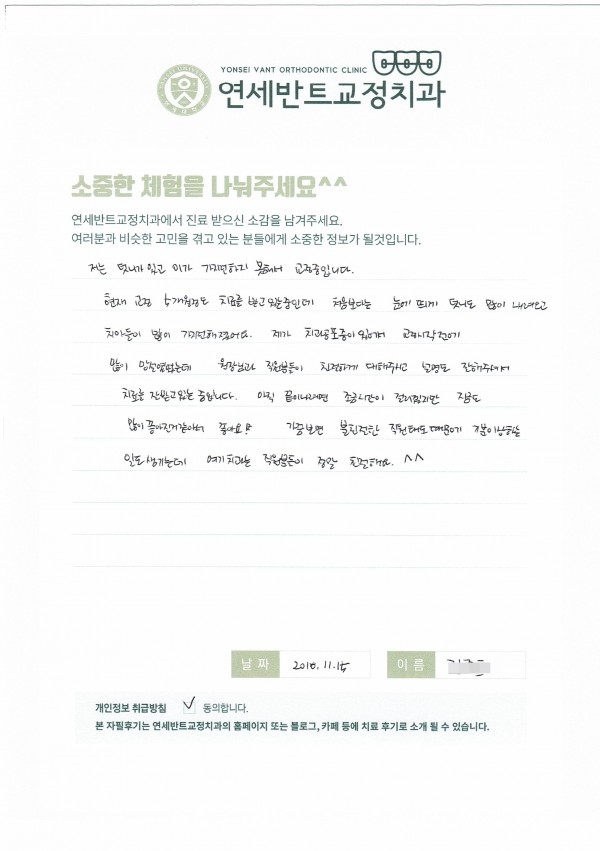 YONSEI VANT ORTHODONTIC CLINIC
연세반트교정치과
소중한 체험을 나눠주세요^^
연세반트교정치과에서 진료 받으신 소감을 남겨주세요.
여러분과 비슷한 고민을 겪고 있는 분들에게 소중한 정보가 될것입니다.
저는 덧니가 있고 이가 가지런하지 못해서 교정중입니다.
현재 교정 5개월정도 치료를 받고있는중인데 처음보다는 눈에 띄게 덧니도 많이 내려오고
치아들이 많이 가지런해졌어요. 제가 치과공포증이 있어서 교정시작전에
많이 망설였었는데 원장님과 직원분들이 친절하게 대해주시고 설명도 잘해주셔서
치료를 잘받고있는 중입니다. 아직 끝이나려면 조금시간이 걸리겠지만 지금도
많이 좋아진거같아서 좋아요! 가끔보면 불친절한 직원태도때문에 기분이상하는
일도 생기는데 여기치과는 직원분들이 정말 친절해요. ^^
날 짜
11.15
이 름
개인정보 취급방침 ✓ 동의합니다.
본 자필후기는 연세반트교정치과의 홈페이지 또는 블로그, 카페 등에 치료 후기로 소개 될 수 있습니다.